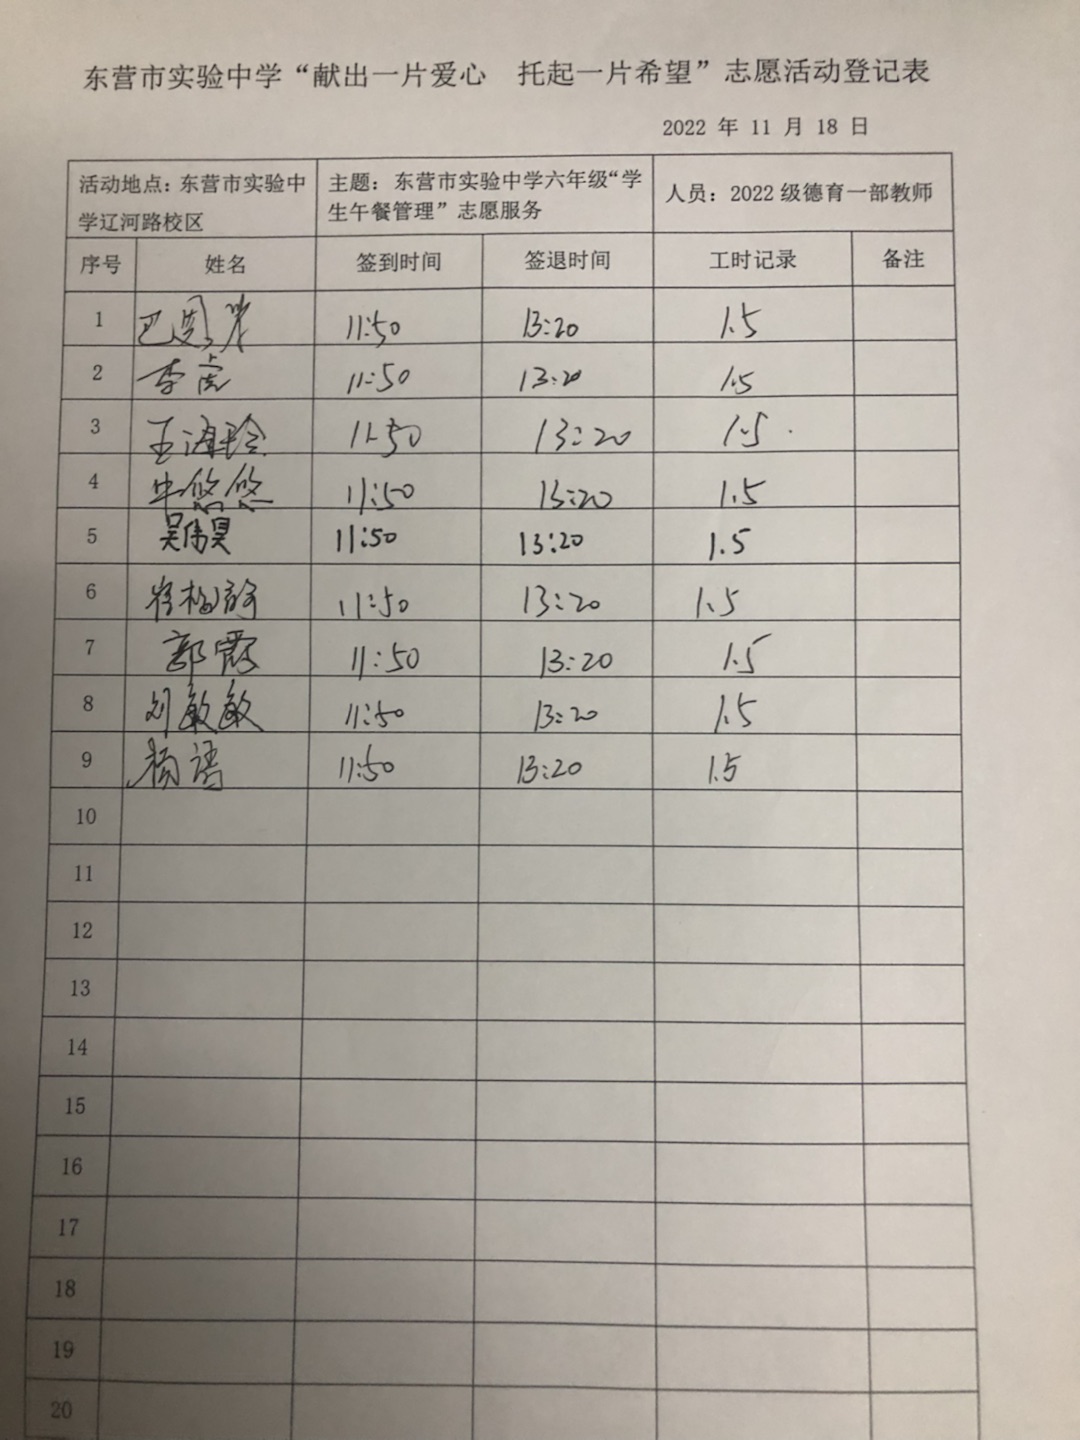 东营市实验中学“献出一片爱心　托起一片希望”志愿活动登记表
2022 年 11 月 18 日
活动地点：东营市实验中学辽河路校区 主题：东营市实验中学六年级“学生午餐管理”志愿服务 人员：2022 级德育一部教师
序号 姓名 签到时间 签退时间 工时记录 备注
1 11:50 13:20 1.5
2 李虎 11:50 13:20 1.5
3 王海玲 11:50 13:20 1.5
4 牛悠悠 11:50 13:20 1.5
5 吴伟昊 11:50 13:20 1.5
6 11:50 13:20 1.5
7 郭霞 11:50 13:20 1.5
8 刘敏敏 11:50 13:20 1.5
9 杨 11:50 13:20 1.5
10
11
12
13
14
15
16
17
18
19
20